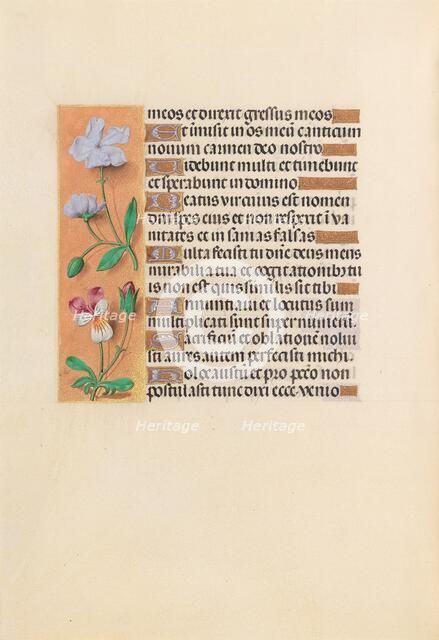 meos et direxit gressus meos
Et inmisit in os meū canticum
novum carmen deo nostro
Videbunt multi et timebunt
et sperabunt in domino
Beatus vir cuius est nomen
dñi spes eius et non respexit ī va
nitates et insanias falsas
Multa fecisti tu dñe deus meus
mirabilia tua et cogitationibꝰ tu
is non est quis similis sit tibi
Annuntiaui et locutus sum
multiplicati sunt super numerū
Sacrificiū et oblationē nolui
sti aures autem perfecisti michi
Holocaustū et pro pctō non
postulasti tunc dixi ecce venio
Heritage
Heritage
Heritage
Heritage
Heritage
Heritage